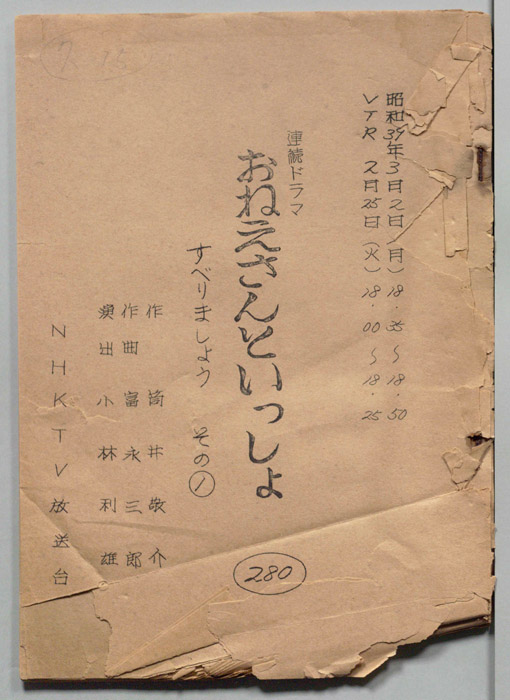 昭和39年3月2日(月)18.35〜18.50
VTR 2月25日(火)18.00〜18.25
連続ドラマ
おねえさんといっしょ
すべりましょう その1
280
作 筒井敬介
作曲 冨永三郎
演出 小林利雄
NHKTV放送台